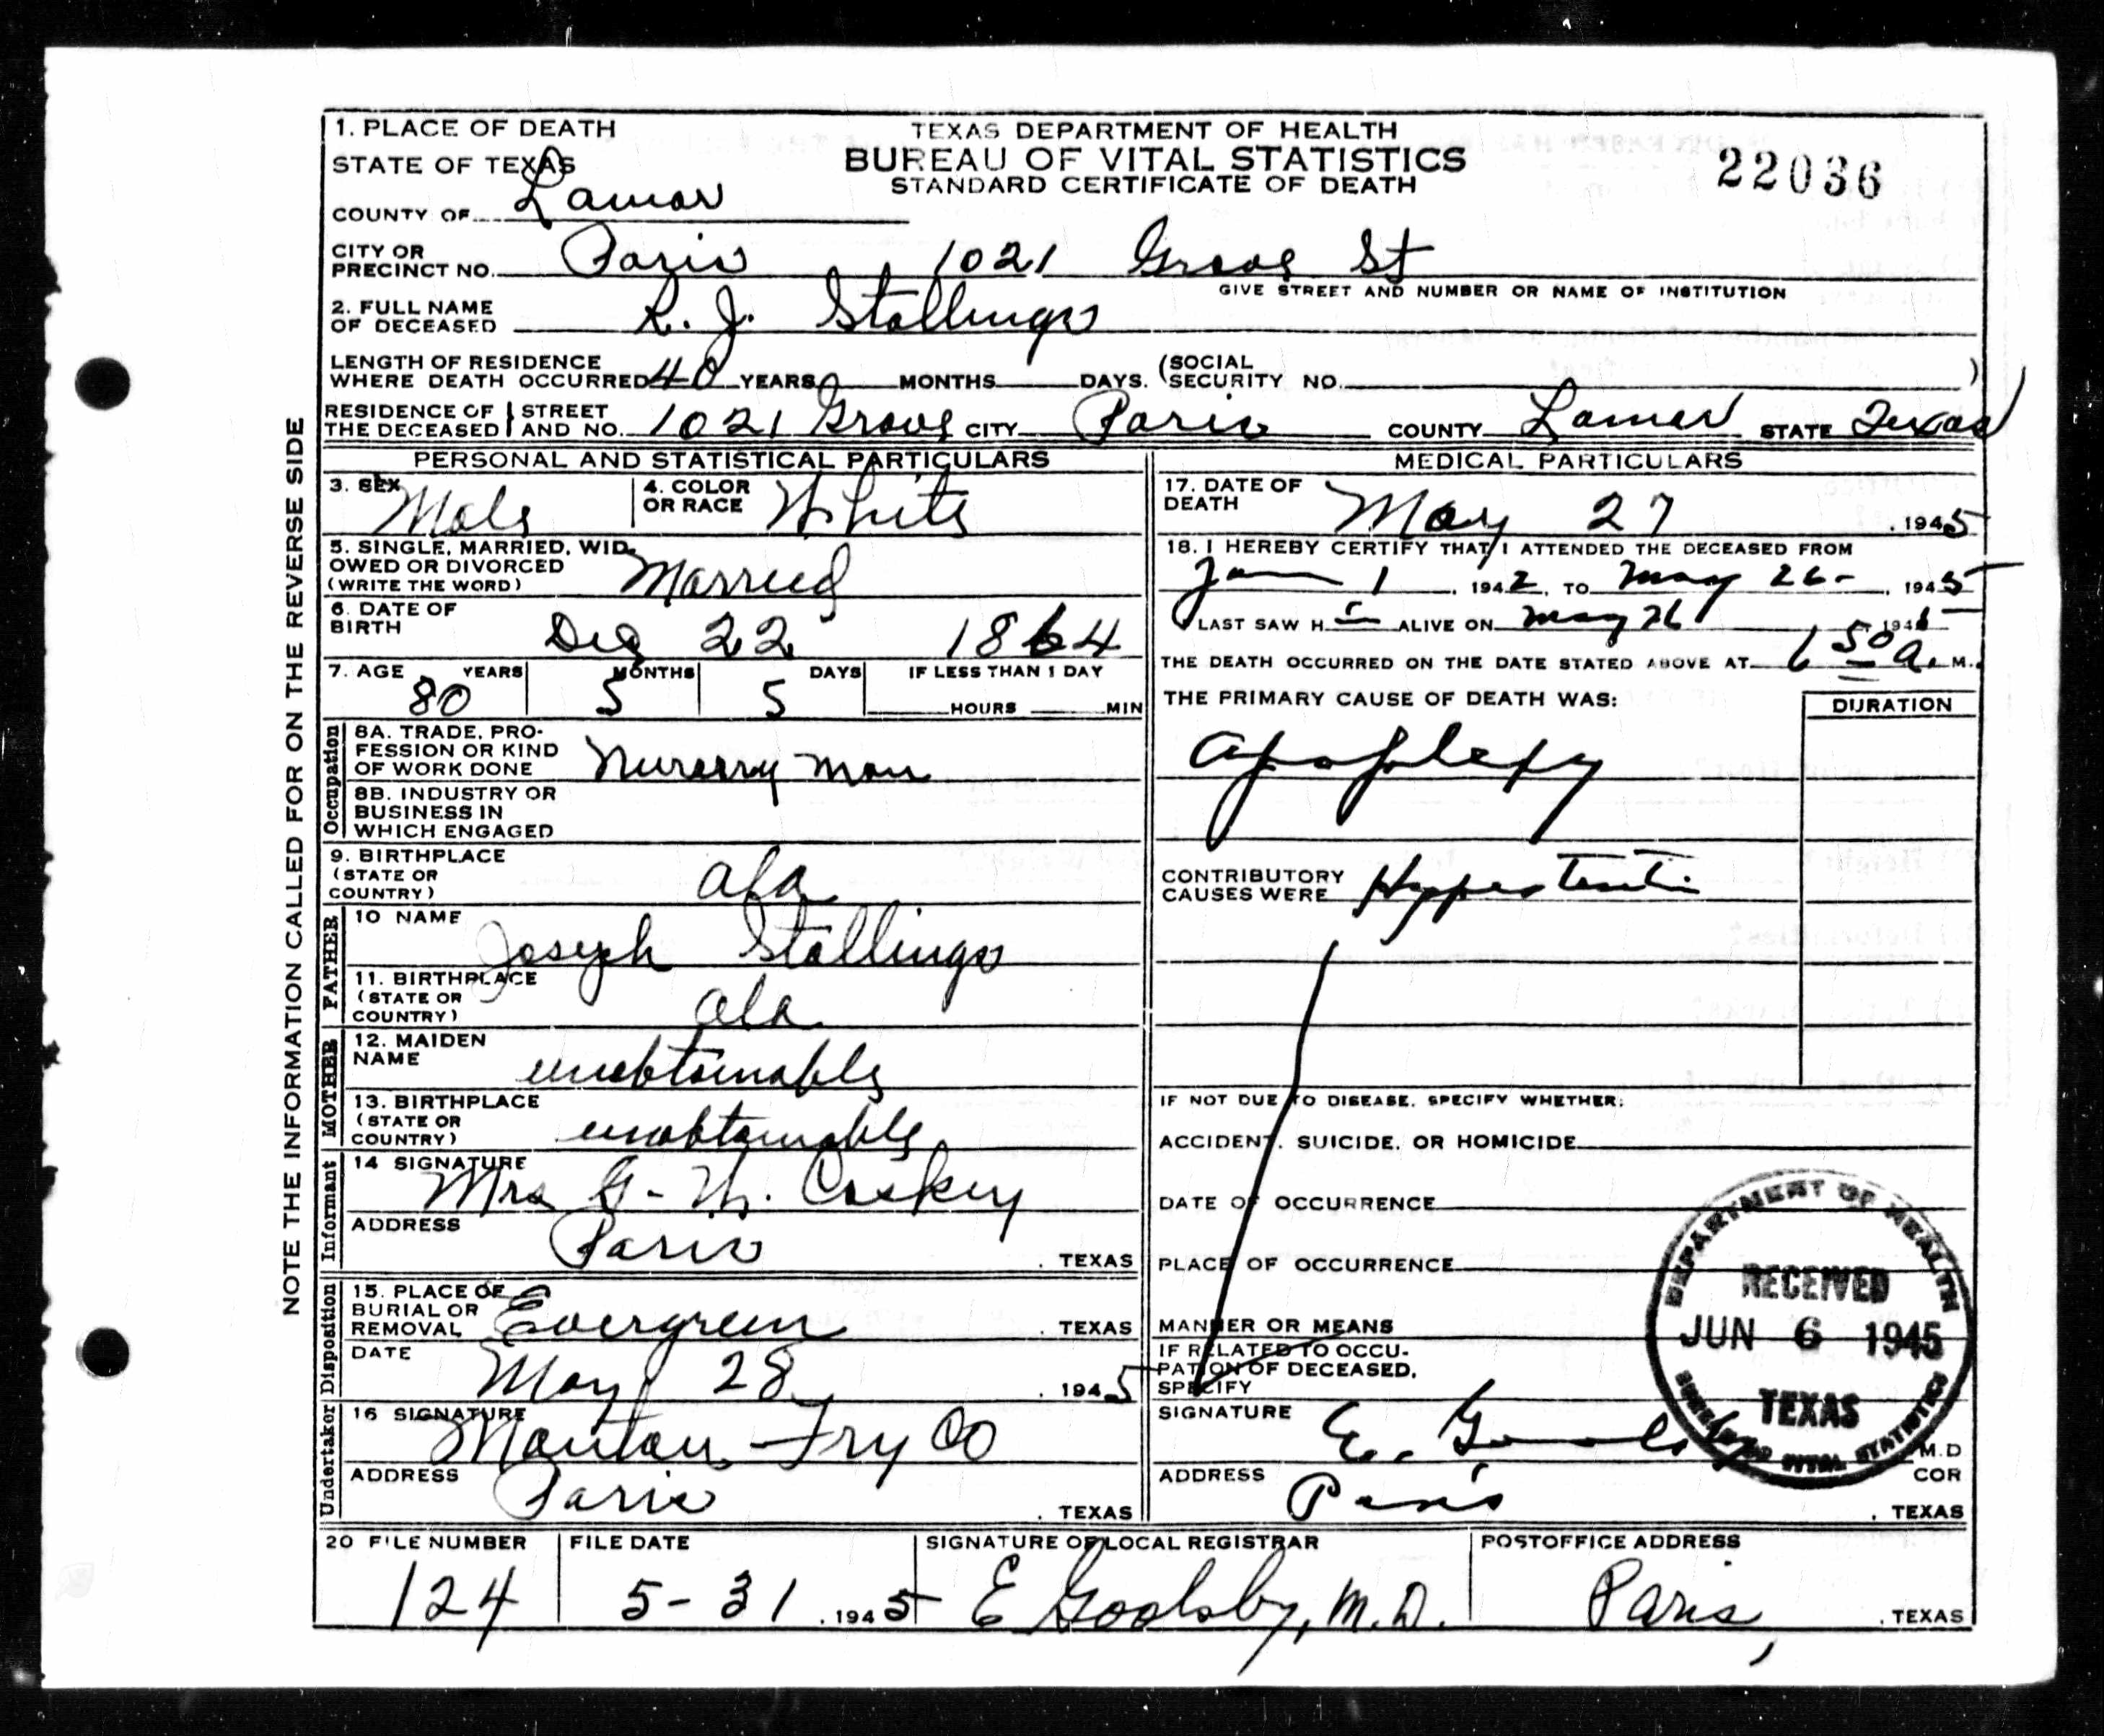 1. PLACE OF DEATH
STATE OF TEXAS
COUNTY OF Lamar
TEXAS DEPARTMENT OF HEALTH
BUREAU OF VITAL STATISTICS
STANDARD CERTIFICATE OF DEATH
22036
CITY OR PRECINCT NO. Paris 1021 Grove St
GIVE STREET AND NUMBER OR NAME OF INSTITUTION
2. FULL NAME OF DECEASED R. J. Stallings
LENGTH OF RESIDENCE WHERE DEATH OCCURRED 40 YEARS MONTHS DAYS. (SOCIAL SECURITY NO. )
RESIDENCE OF THE DECEASED STREET AND NO. 1021 Grove CITY Paris COUNTY Lamar STATE Texas
NOTE THE INFORMATION CALLED FOR ON THE REVERSE SIDE
PERSONAL AND STATISTICAL PARTICULARS
3. SEX Male
4. COLOR OR RACE White
5. SINGLE, MARRIED, WIDOWED OR DIVORCED
(WRITE THE WORD) Married
6. DATE OF BIRTH Dec 22 1864
7. AGE YEARS MONTHS DAYS IF LESS THAN 1 DAY
80 5 5 HOURS MIN
Occupation
8A. TRADE, PROFESSION OR KIND OF WORK DONE Nursery man
8B. INDUSTRY OR BUSINESS IN WHICH ENGAGED
9. BIRTHPLACE (STATE OR COUNTRY) ala
FATHER
10 NAME Joseph Stallings
11. BIRTHPLACE (STATE OR COUNTRY) ala
MOTHER
12. MAIDEN NAME unobtainable
13. BIRTHPLACE (STATE OR COUNTRY) unobtainable
Informant
14 SIGNATURE Mrs G. W. Caskey
ADDRESS Paris . TEXAS
Disposition
15. PLACE OF BURIAL OR REMOVAL Evergreen . TEXAS
DATE May 28 . 1945
Undertaker
16 SIGNATURE Manton Fry Co
ADDRESS Paris . TEXAS
MEDICAL PARTICULARS
17. DATE OF DEATH May 27 . 1945
18. I HEREBY CERTIFY THAT I ATTENDED THE DECEASED FROM
Jan 1 . 1942, TO May 26 - , 1945
I LAST SAW H ALIVE ON May 26 194
THE DEATH OCCURRED ON THE DATE STATED ABOVE AT 6 50 a. M.
THE PRIMARY CAUSE OF DEATH WAS: DURATION
apoplexy
CONTRIBUTORY CAUSES WERE
IF NOT DUE TO DISEASE, SPECIFY WHETHER:
ACCIDENT, SUICIDE, OR HOMICIDE
DATE OF OCCURRENCE
PLACE OF OCCURRENCE
MANNER OR MEANS
IF RELATED TO OCCUPATION OF DECEASED, SPECIFY
SIGNATURE E. M.D
ADDRESS Paris COR
. TEXAS
DEPARTMENT OF HEALTH
RECEIVED
JUN 6 1945
TEXAS
BUREAU OF VITAL STATISTICS
20 FILE NUMBER FILE DATE SIGNATURE OF LOCAL REGISTRAR POSTOFFICE ADDRESS
124 5-31 . 1945 E Goolsby, M.D. Paris, . TEXAS